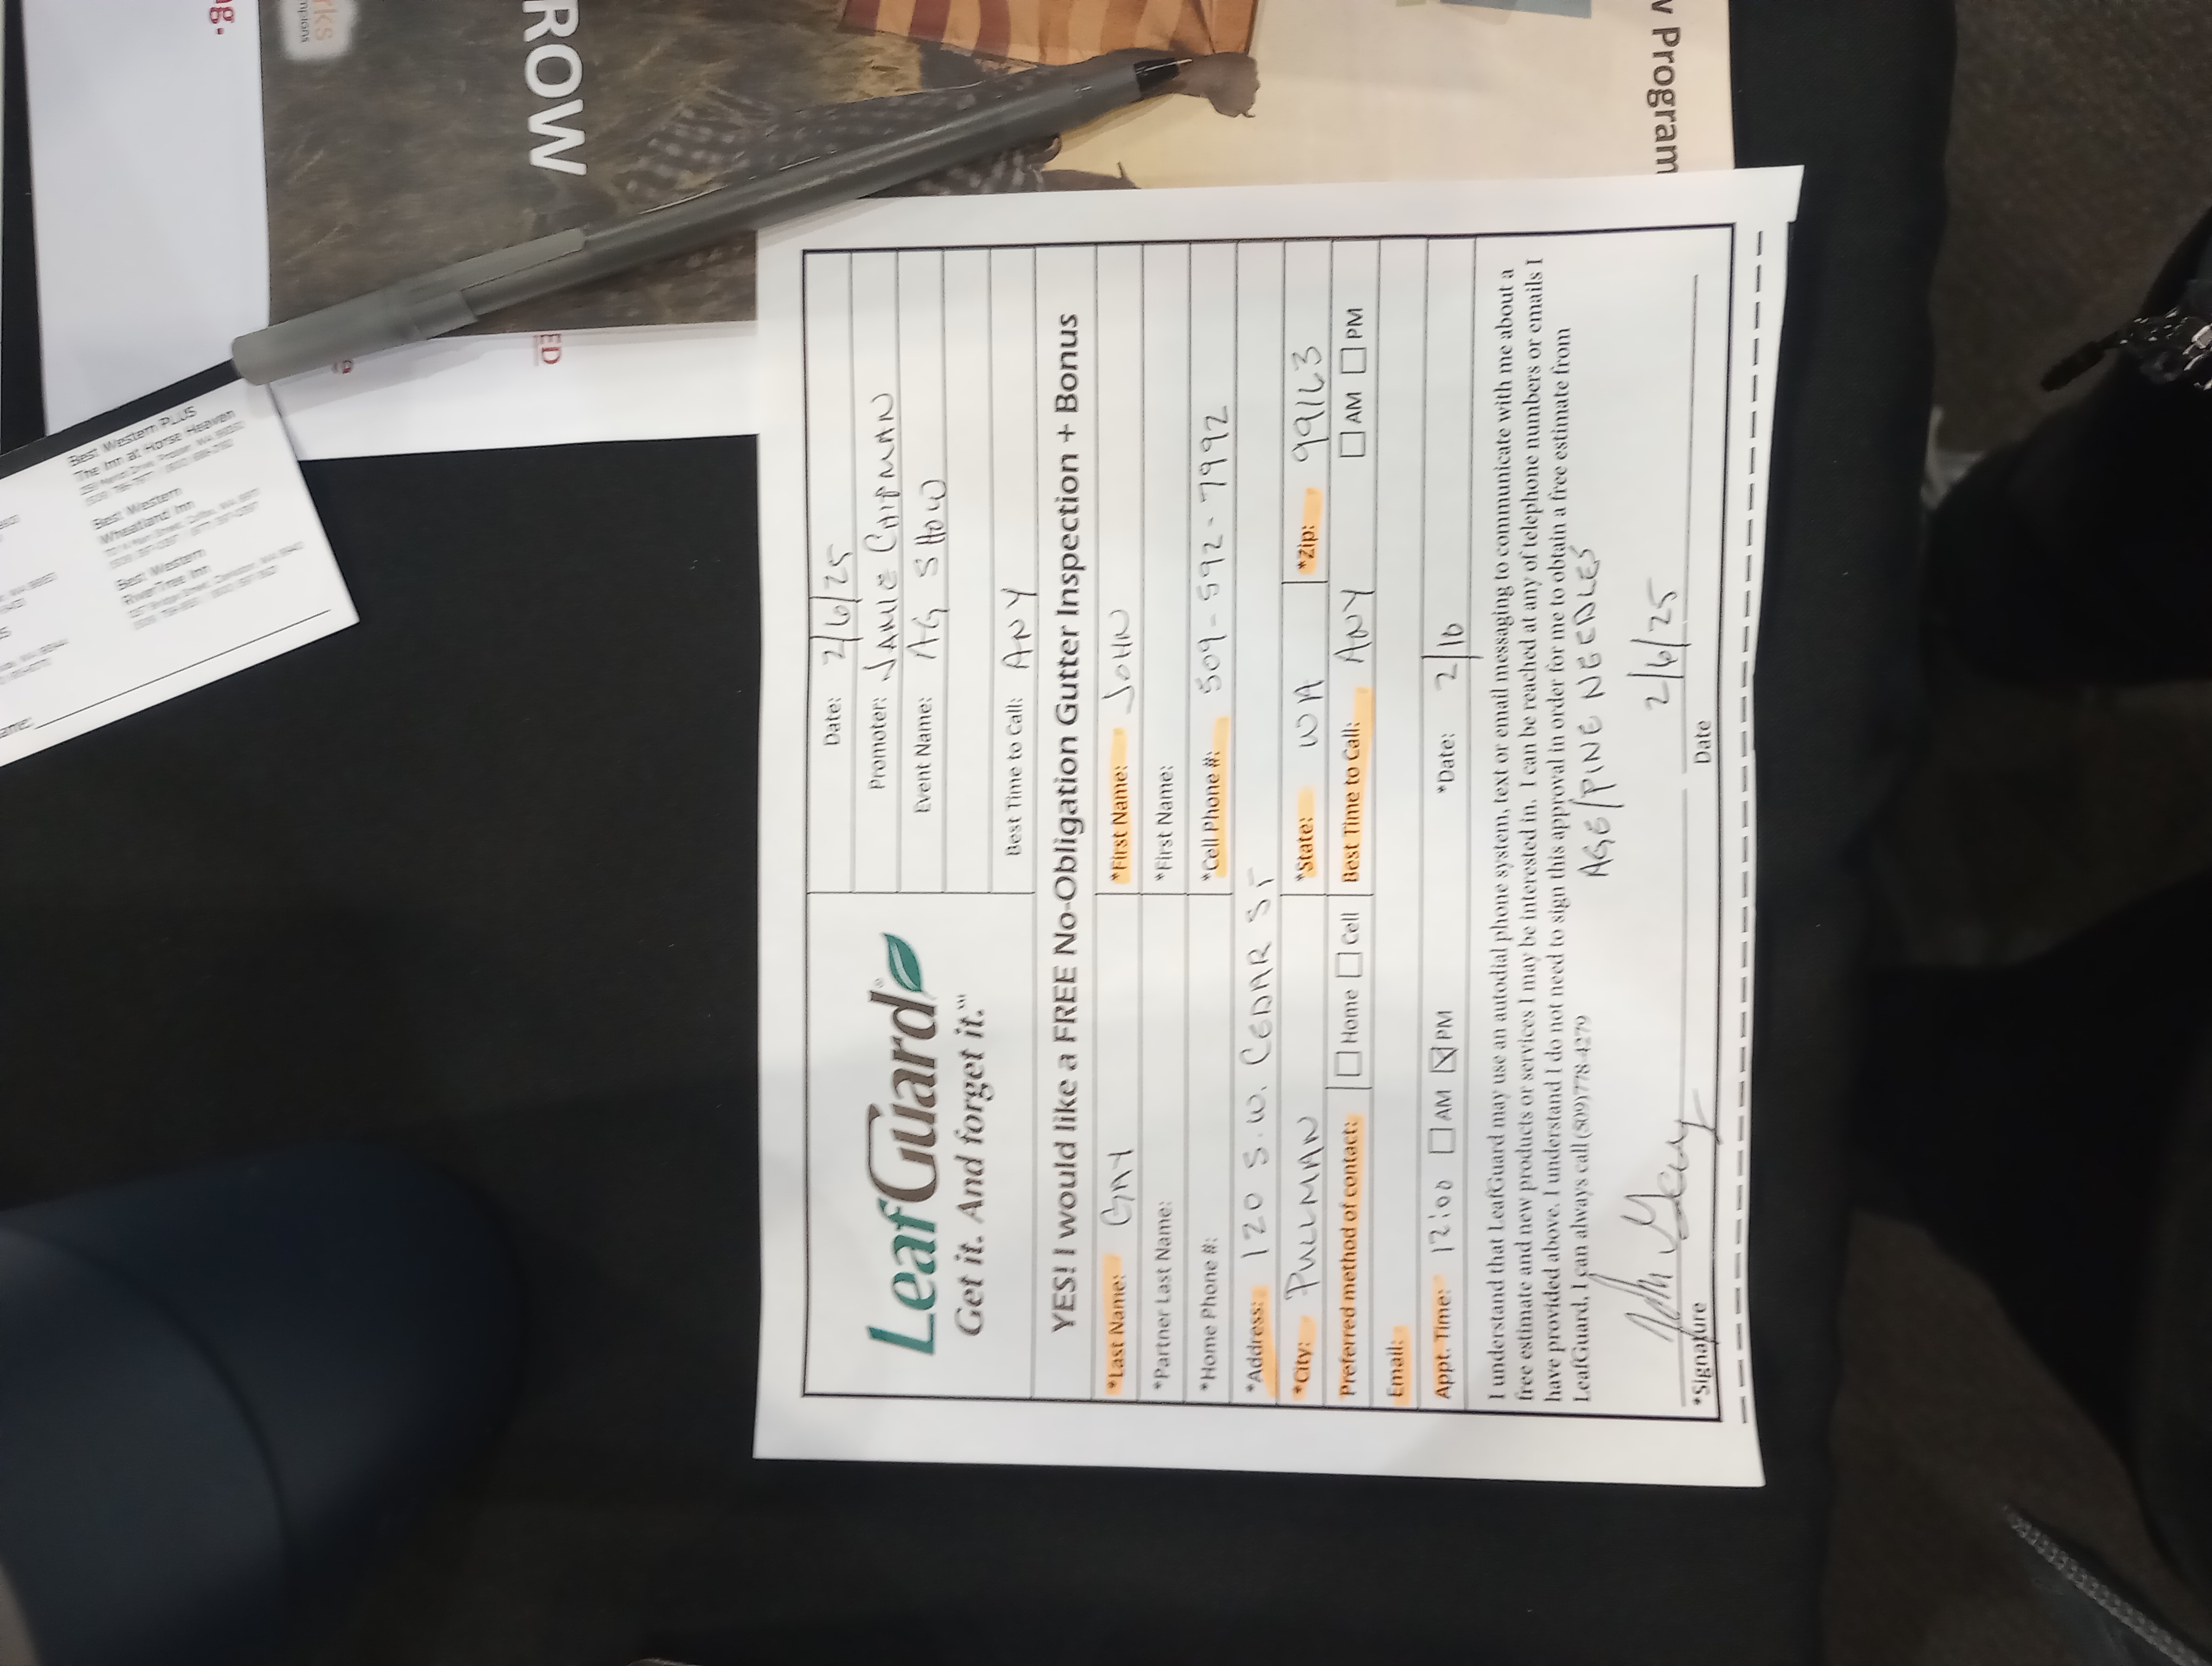 Best Western PLUS
The Inn at Horse Heaven
Best Western
Wheatland Inn
Best Western
RiverTree Inn
ROW
ED
w Program
LeafGuard®
Get it. And forget it.℠
Date: 2/6/25
Promoter: JAMIE CHIPMAN
Event Name: AG SHOW
Best Time to Call: ANY
YES! I would like a FREE No-Obligation Gutter Inspection + Bonus
*Last Name: GAY *First Name: JOHN
*Partner Last Name: *First Name:
*Home Phone #: *Cell Phone #: 509-592-7992
*Address: 120 S.W. CEDAR ST
*City: PULLMAN *State: WA *Zip: 99163
Preferred method of contact: Home Cell Best Time to Call: ANY AM PM
Email:
Appt. Time: 12:00 AM PM *Date: 2/10
I understand that LeafGuard may use an autodial phone system, text or email messaging to communicate with me about a
free estimate and new products or services I may be interested in. I can be reached at any of telephone numbers or emails I
have provided above. I understand I do not need to sign this approval in order for me to obtain a free estimate from
LeafGuard, I can always call (509)778-4279
AGE/PINE NEEDLES
John Gay 2/6/25
*Signature Date